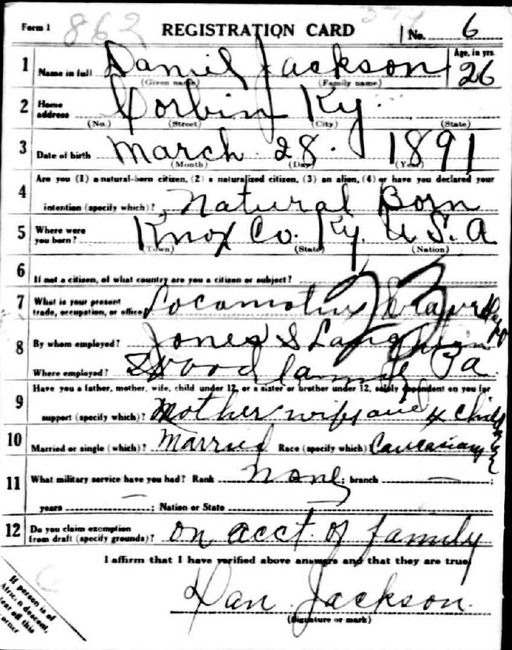 Form 1 862 REGISTRATION CARD No. 6
1 Name in full Daniel Jackson Age, in yrs. 26
(Given name) (Family name)
2 Home address Corbin Ky.
(No.) (Street) (City) (State)
3 Date of birth March 28. 1891
(Month) (Day) (Year)
4 Are you (1) a natural-born citizen, (2) a naturalized citizen, (3) an alien, (4) or have you declared your
intention (specify which)? Natural Born
5 Where were you born? Knox Co. Ky. U.S.A
(Town) (State) (Nation)
6 If not a citizen, of what country are you a citizen or subject?
7 What is your present trade, occupation, or office? Locomotive
8 By whom employed? Jones &
Where employed? Pa.
9 Have you a father, mother, wife, child under 12, or a sister or brother under 12, solely dependent on you for
support (specify which)? Mother wife and child
10 Married or single (which)? Married Race (specify which)? Caucasian
11 What military service have you had? Rank none; branch —
years —; Nation or State
12 Do you claim exemption from draft (specify grounds)? on acct. of family
I affirm that I have verified above answers and that they are true.
Dan Jackson.
(Signature or mark)
If person is of